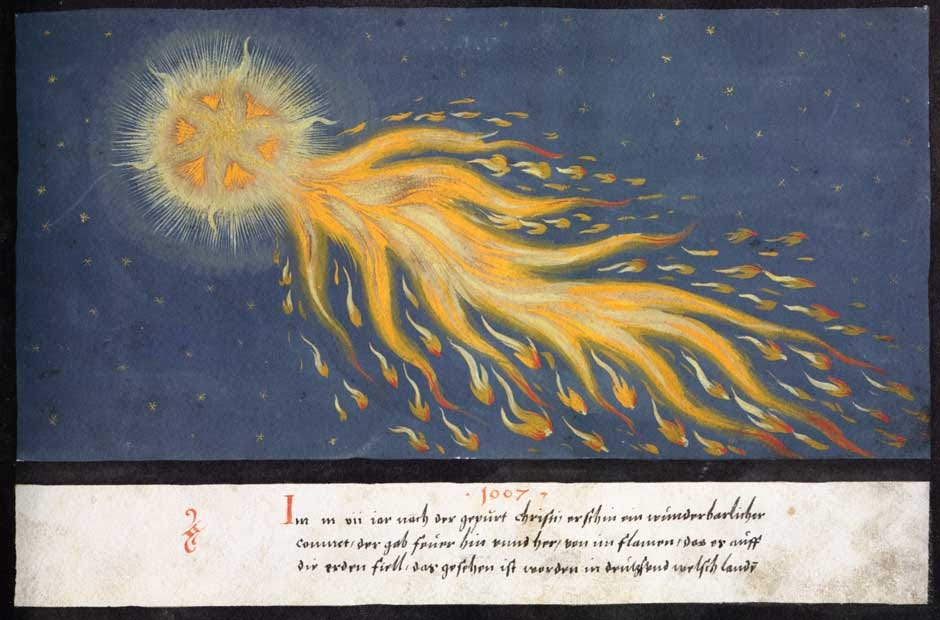 · 1007 ·
Im m vii iar nach der gepurt christi erschin ein wunderbarlicher
commet / der gab feuer hin vnnd her / von im flamen / das es auff
die erden fiell / das gesehen ist worden in deutsch vnd welsch lande